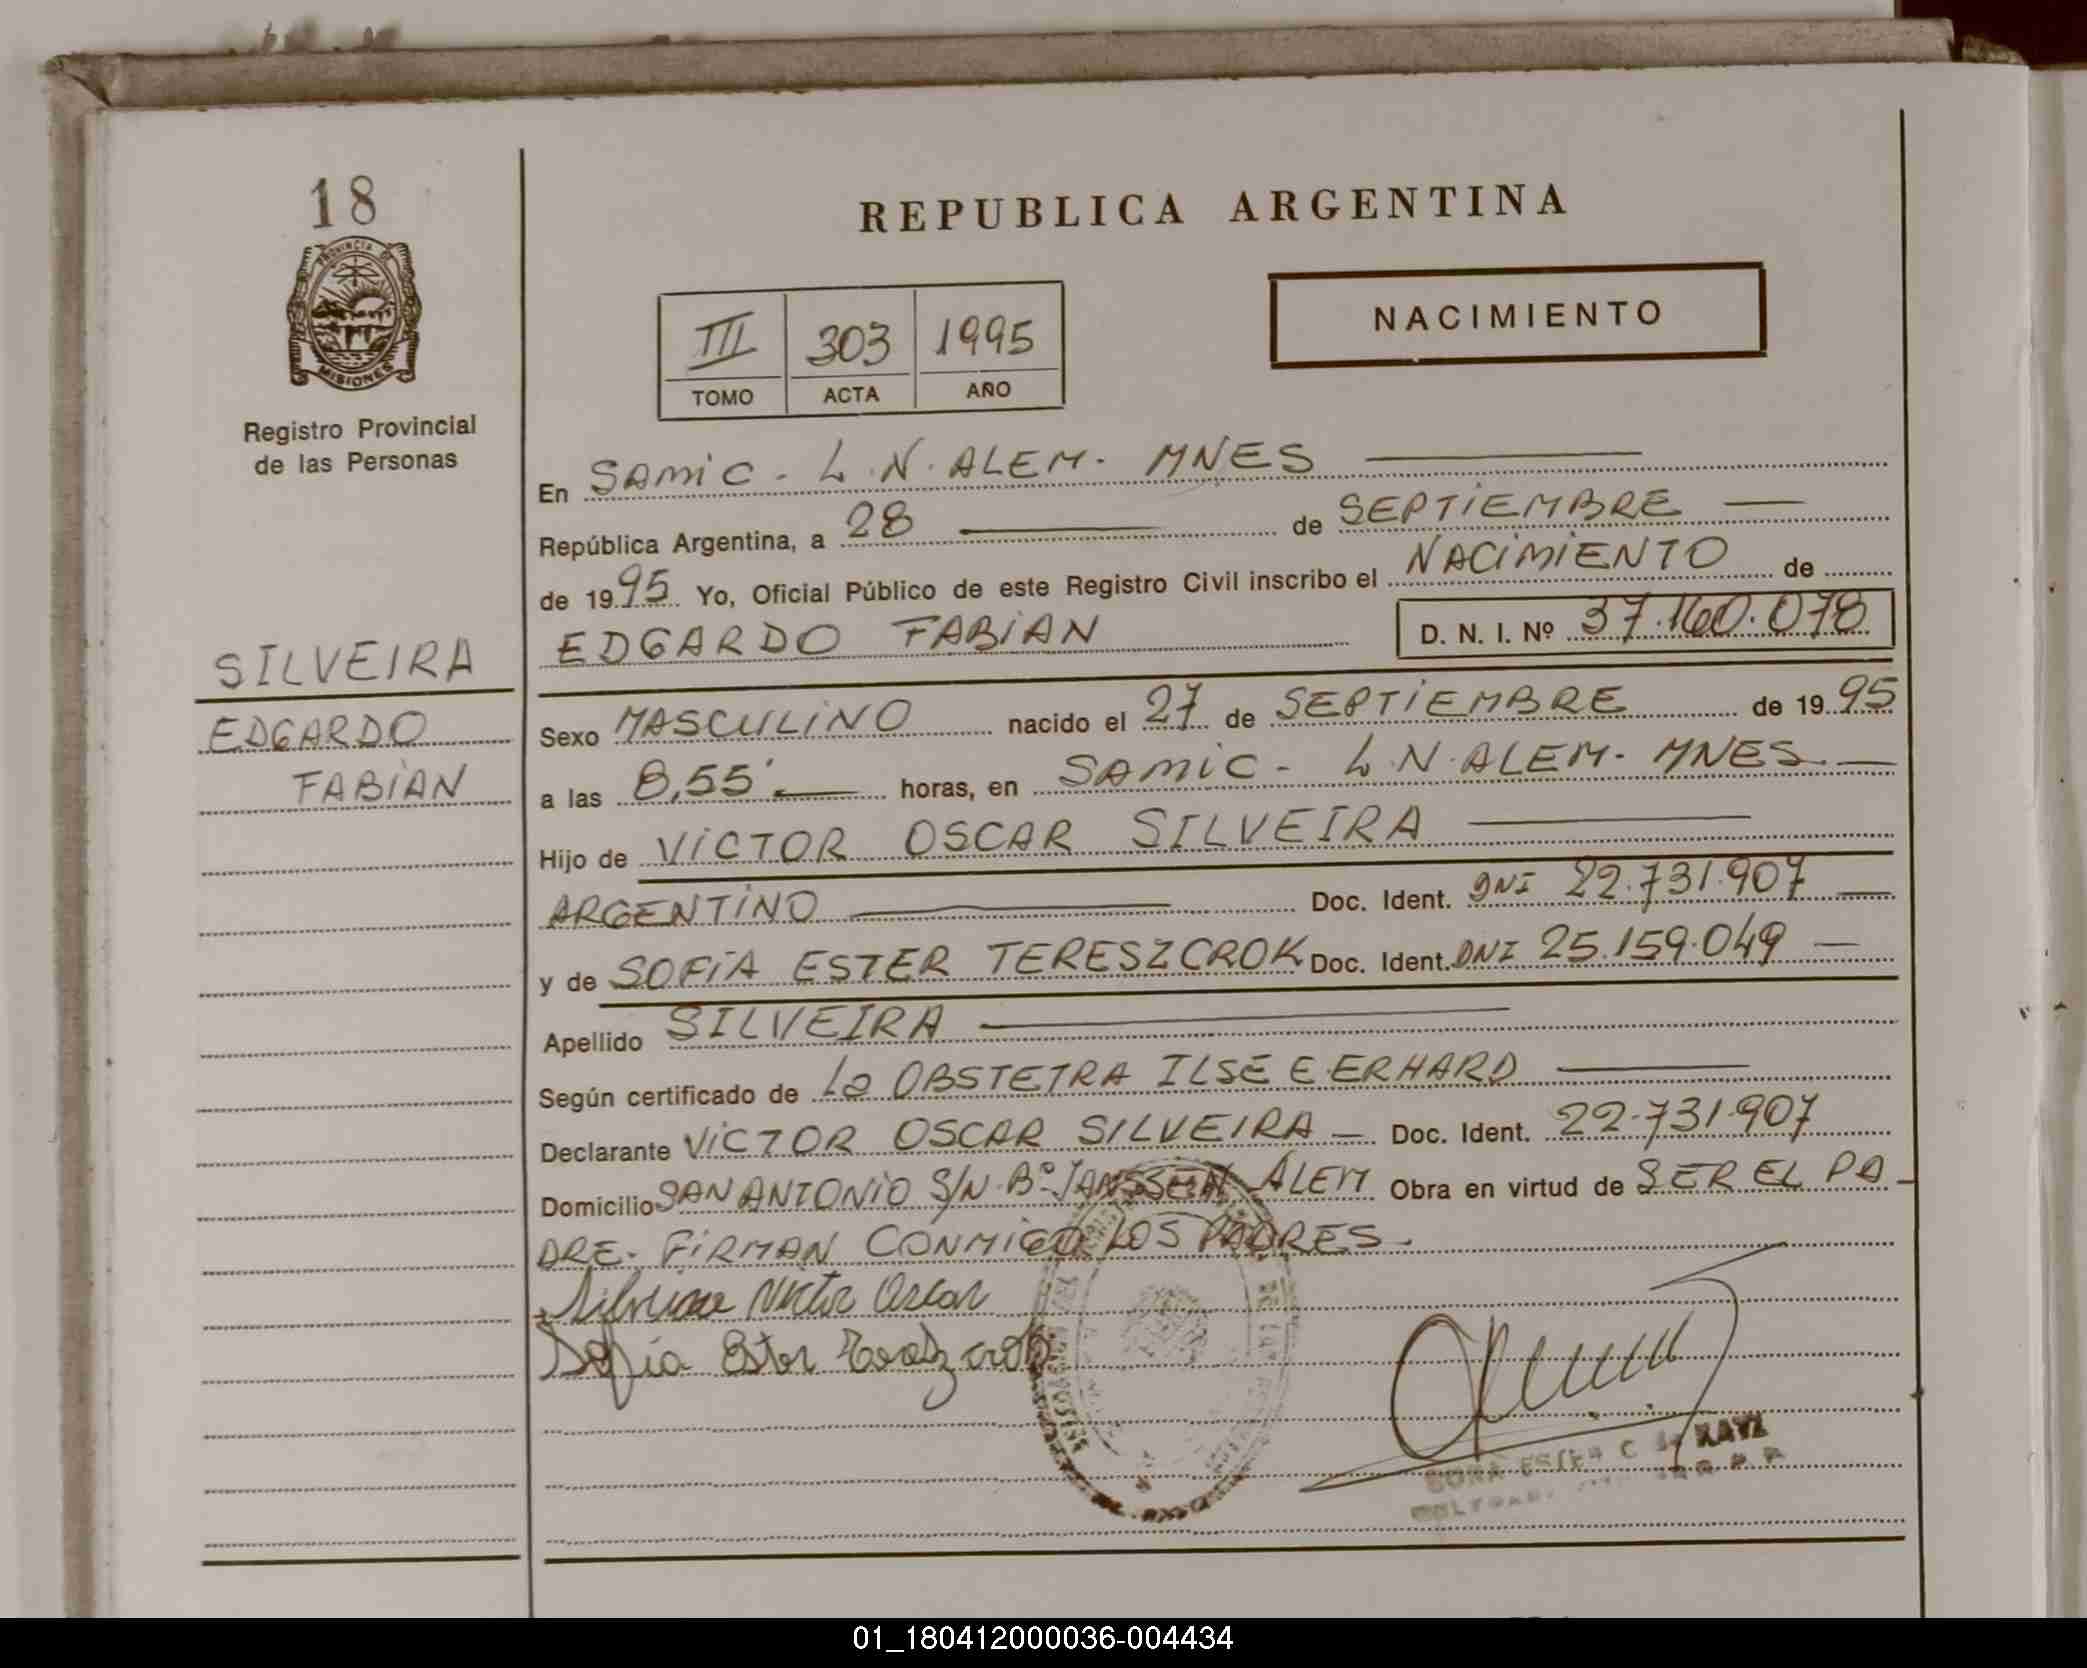 18
PROVINCIA DE
MISIONES
Registro Provincial
de las Personas
SILVEIRA
EDGARDO
FABIAN
REPUBLICA ARGENTINA
III 303 1995
TOMO ACTA AÑO
NACIMIENTO
En SAMIC - L.N. ALEM - MNES
República Argentina, a 28 de SEPTIEMBRE
de 1995 Yo, Oficial Público de este Registro Civil inscribo el NACIMIENTO de
EDGARDO FABIAN D. N. I. Nº 37.160.078
Sexo MASCULINO nacido el 27 de SEPTIEMBRE de 1995
a las 8,55' horas, en SAMIC - L.N. ALEM - MNES
Hijo de VICTOR OSCAR SILVEIRA
ARGENTINO Doc. Ident. DNI 22.731.907
y de SOFIA ESTER TERESZCROK Doc. Ident. DNI 25.159.049
Apellido SILVEIRA
Según certificado de La OBSTETRA ILSE E. ERHARD
Declarante VICTOR OSCAR SILVEIRA Doc. Ident. 22.731.907
Domicilio SAN ANTONIO S/N Bº JANSSEN ALEM Obra en virtud de SER EL PA-
DRE. FIRMAN CONMIGO LOS PADRES.
Silveira Victor Oscar
Sofia Ester
ESTER C de
01_180412000036-004434